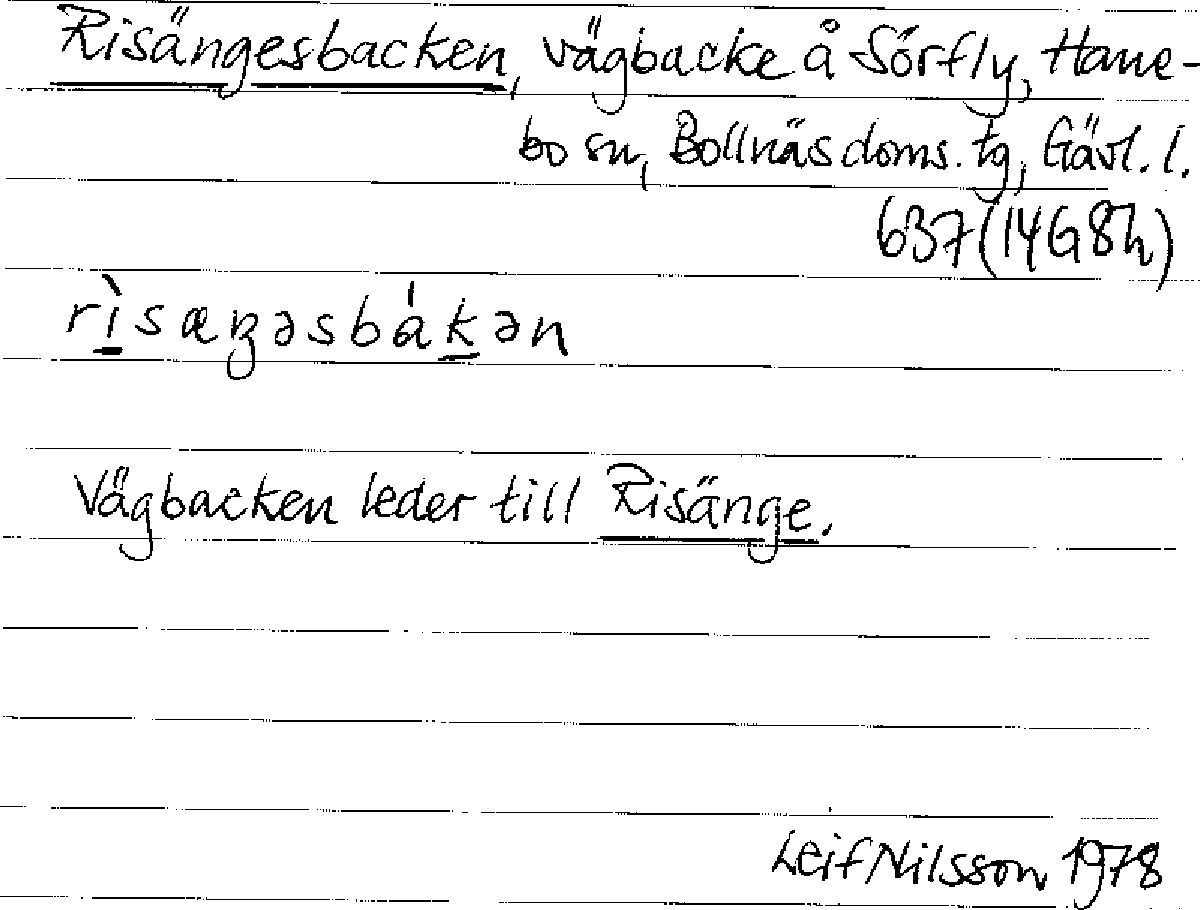 Risängesbacken, vägbacke å Sörfly, Hane-
bo sn, Bollnäs doms. tg, Gävl. l.
637 (14G8h)
rìsæŋəsbákən
Vägbacken leder till Risänge.
Leif Nilsson 1978